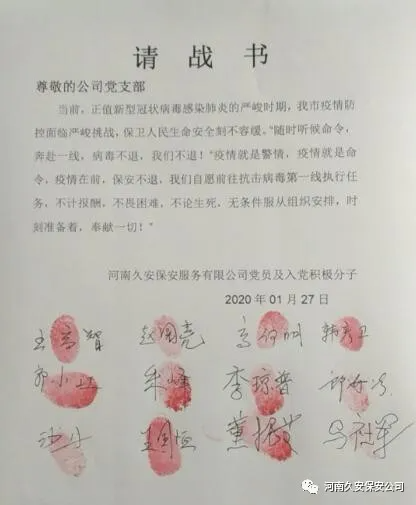 请战书
尊敬的公司党支部
当前，正值新型冠状病毒感染肺炎的严峻时期，我市疫情防
控面临严峻挑战，保卫人民生命安全刻不容缓。“随时听候命令，
奔赴一线，病毒不退，我们不退！”疫情就是警情，疫情就是命
令，疫情在前，保安不退，我们自愿前往抗击病毒第一线执行任
务，不计报酬，不畏困难，不论生死，无条件服从组织安排，时
刻准备着，奉献一切！”
河南久安保安服务有限公司党员及入党积极分子
2020 年 01 月 27 日
赵国亮
李琼普
河南久安保安公司